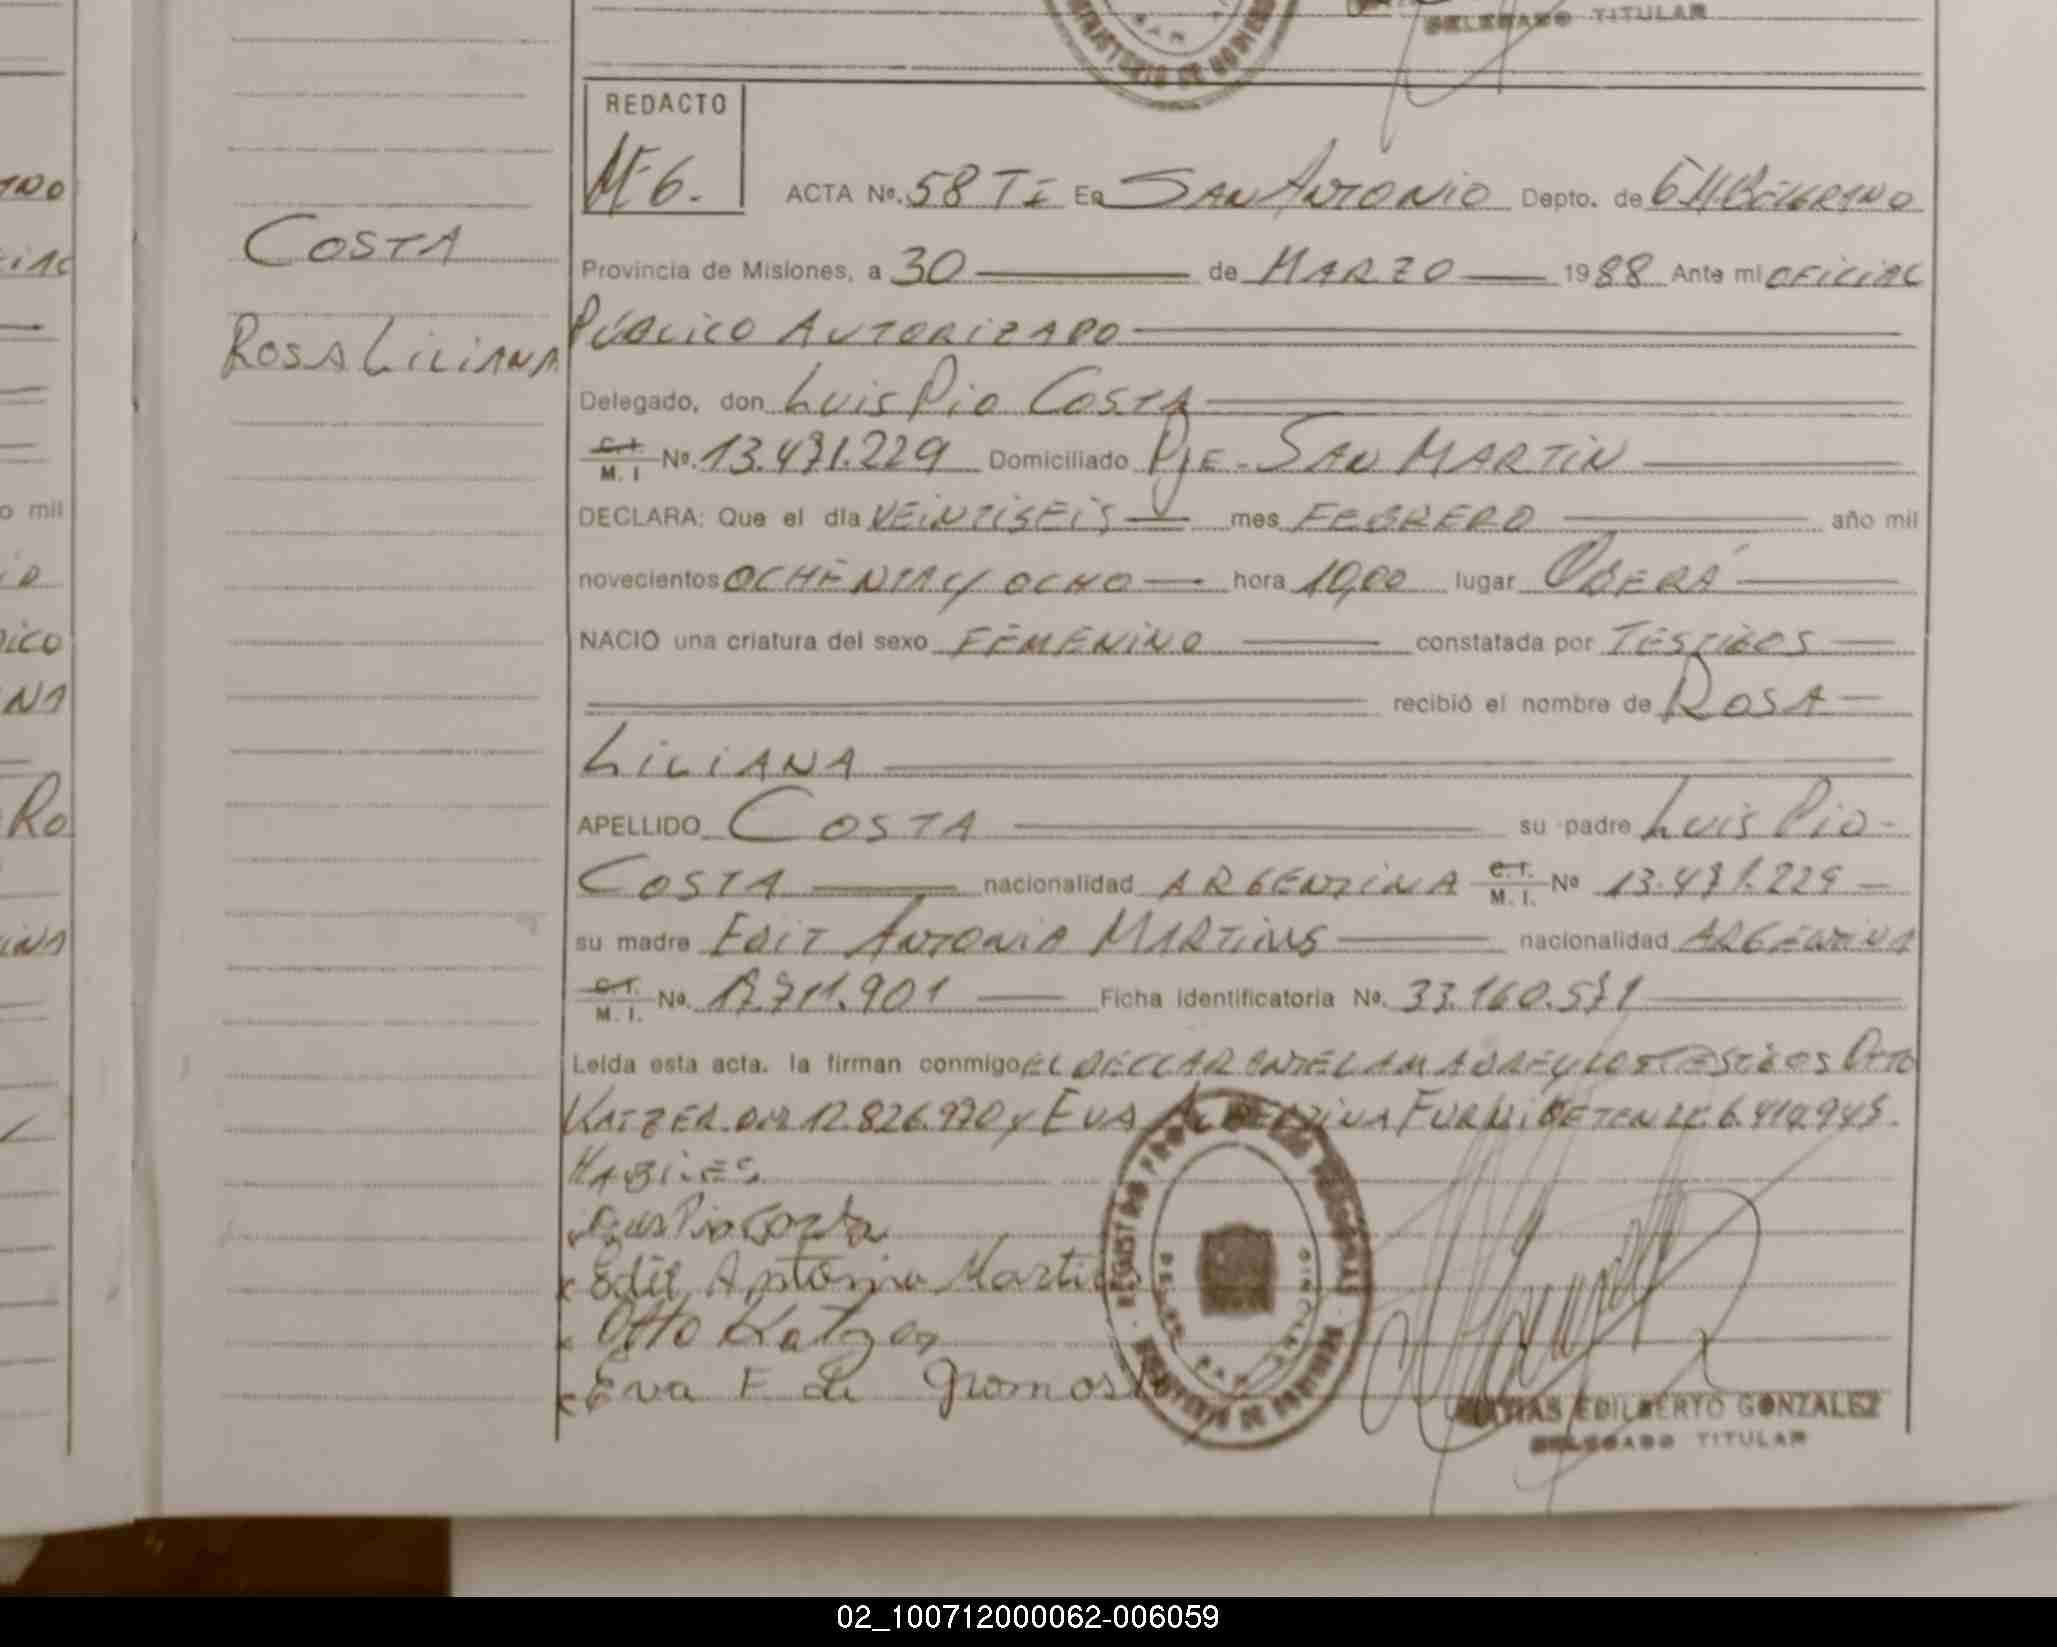 DELEGADO TITULAR
REDACTO
ME6.
ACTA Nº. 58 TI En SAN ANTONIO Depto. de G M. BELGRANO
COSTA
Provincia de Misiones, a 30 de MARZO 1988 Ante mi OFICIAL
ROSA LILIANA
PÚBLICO AUTORIZADO
Delegado, don Luis Pio COSTA
C. I. M. I Nº. 13.471.229 Domiciliado Pje. SAN MARTIN
DECLARA: Que el día VEINTISEIS mes FEBRERO año mil
novecientos OCHENTA y OCHO hora 10,00 lugar OBERÁ
NACIO una criatura del sexo FEMENINO constatada por TESTIGOS
recibió el nombre de ROSA
LILIANA
APELLIDO COSTA su padre Luis Pio
COSTA nacionalidad ARGENTINA C. I. M. I. Nº 13.471.229
su madre EDIT ANTONIA MARTINS nacionalidad ARGENTINA
C. I. M. I. Nº. 17.711.901 Ficha identificatoria Nº. 33.160.571
Leída esta acta. la firman conmigo EL DECLARANTE LA MADRE y LOS TESTIGOS OTTO
KATZER. DNI 12.826.970 y EVA FURNIBETEN LC 6.410.945.
HABILES
Luis Pio Costa
x Edit Antonia Martins
x Otto Katzer
x Eva F. de Gromos
REGISTRO PROV. DE LAS PERSONAS
MINISTERIO DE GOBIERNO
MATIAS EDILBERTO GONZALEZ
DELEGADO TITULAR
02_100712000062-006059